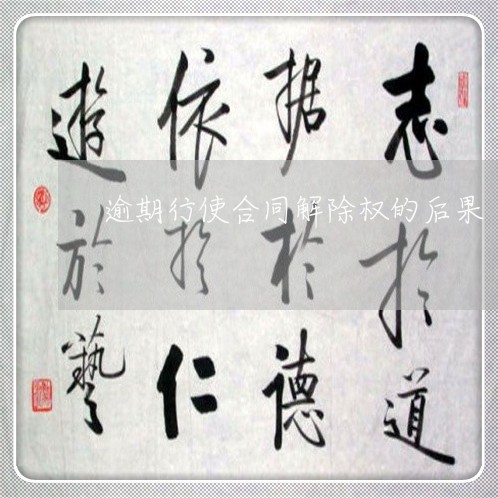 志於道
据於德
依於仁
遊於藝
逾期行使合同解除权的后果